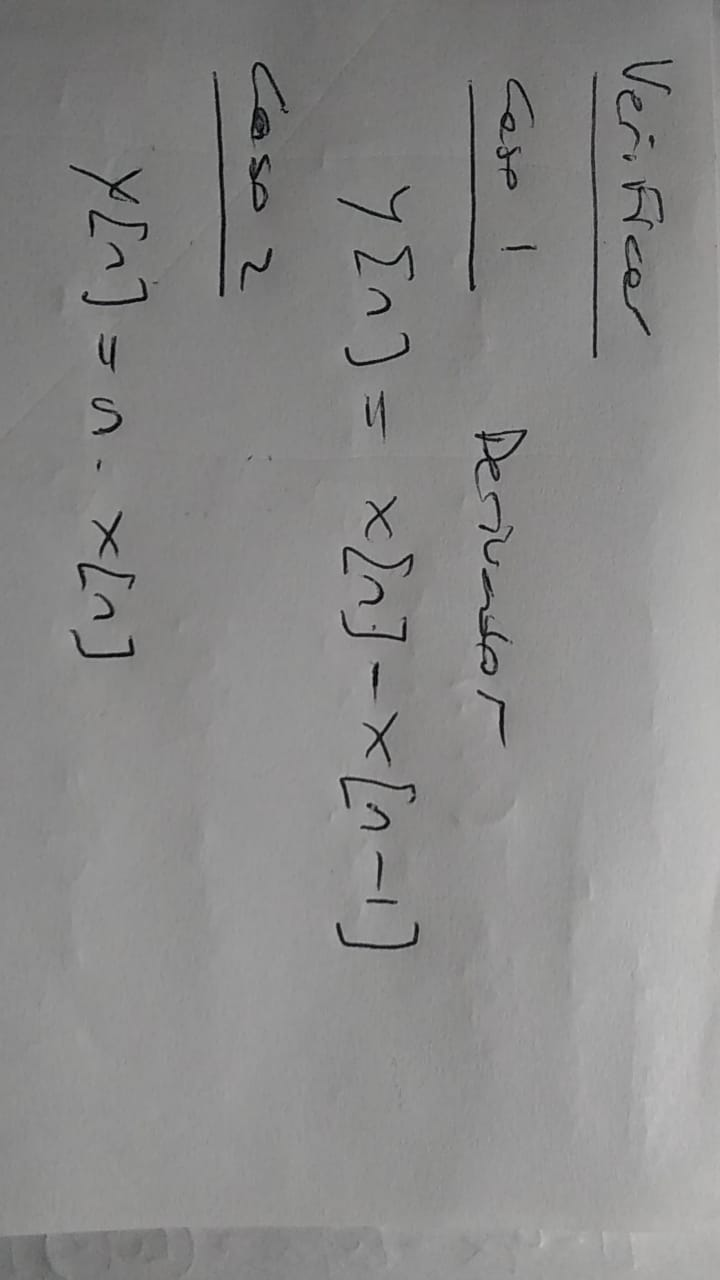 Verificar
Caso 1 Derivador
y[n] = x[n] - x[n-1]
Caso 2
y[n] = n . x[n]